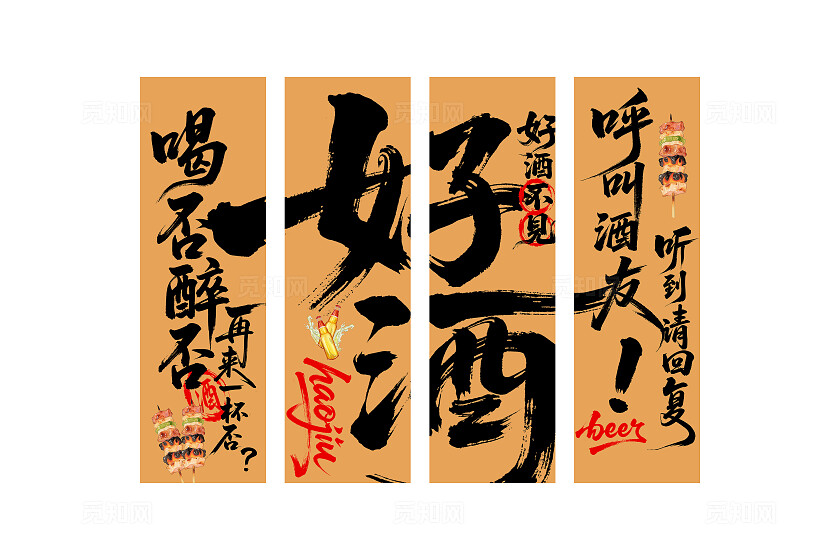 喝否醉否
再来一杯否？
酒
好酒
haojiu
好酒不见
呼叫酒友！
听到请回复
beer
觅知网